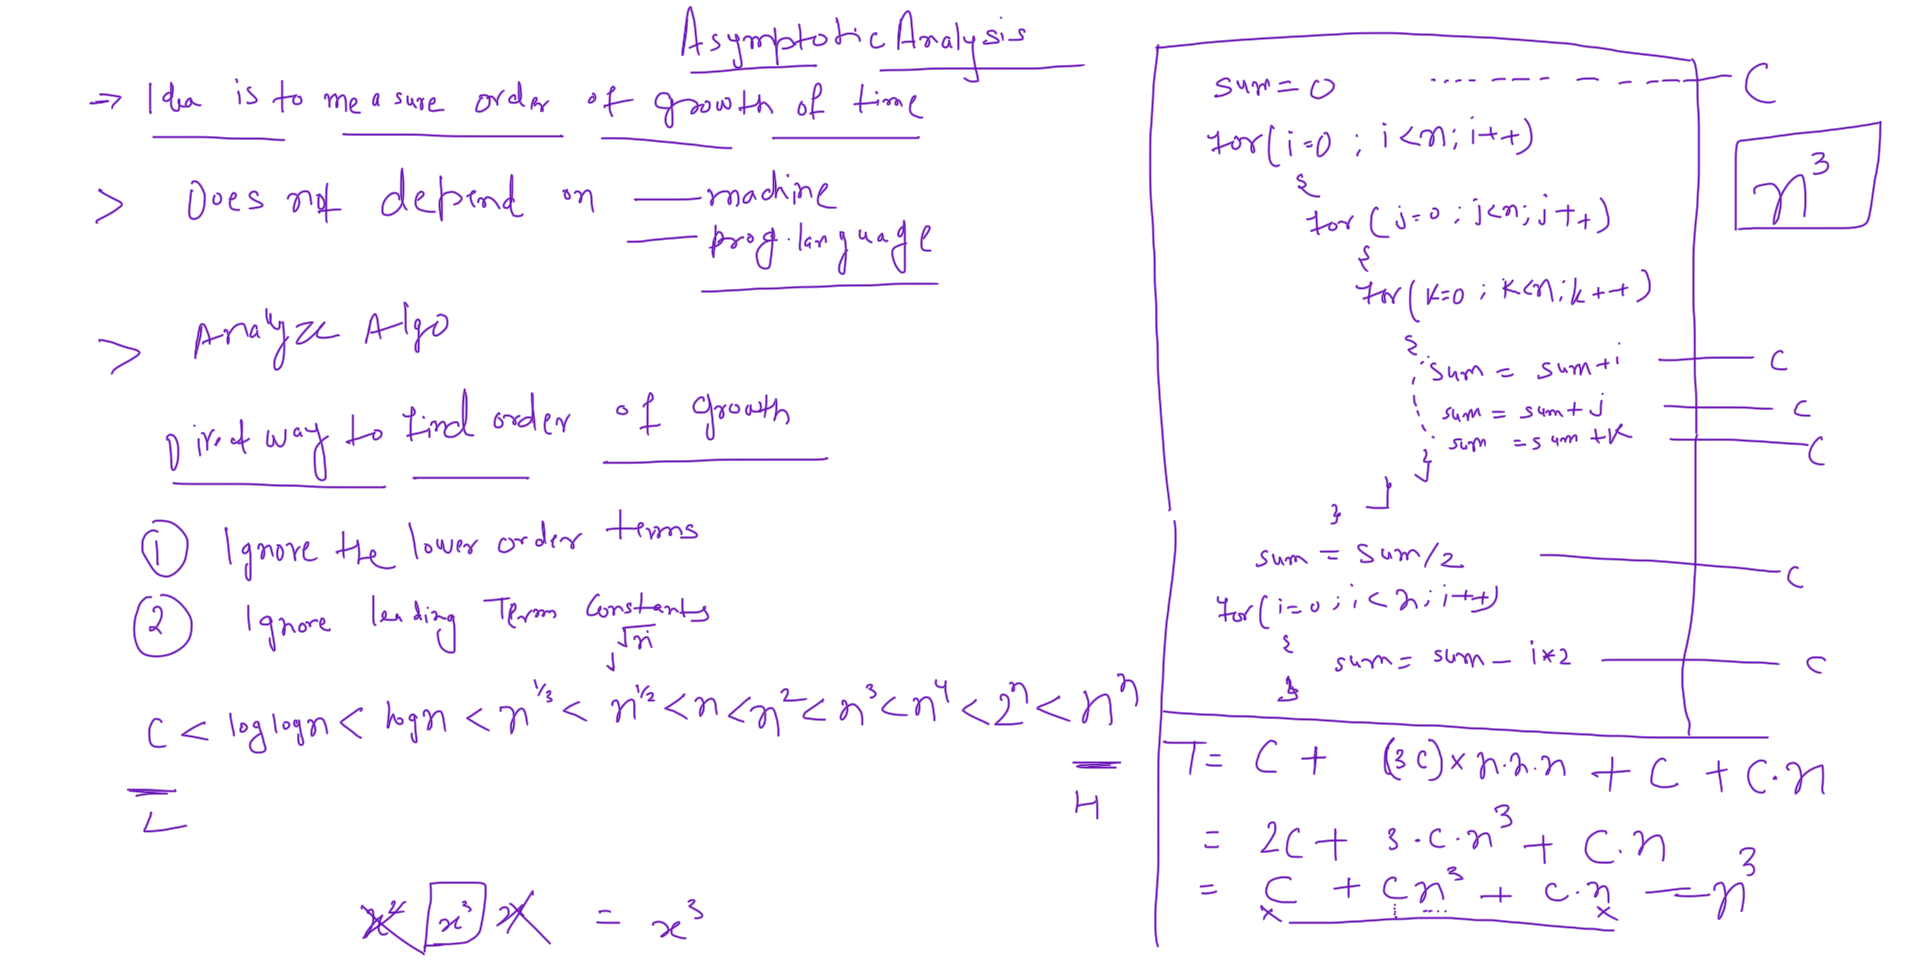 Asymptotic Analysis
→ Idea is to measure order of growth of time
> Does not depend on — machine
— prog. language
> Analyze Algo
Direct way to find order of growth
① Ignore the lower order terms
② Ignore leading Term Constants
√n
C < log log n < log n < n^1/3 < n^1/2 < n < n² < n³ < n⁴ < 2ⁿ < nⁿ
L H
x² x³ x = x³
sum = 0 ---- C
for(i=0 ; i<n; i++)
{
for (j=0 ; j<n; j++)
{
for (k=0 ; k<n; k++)
{
sum = sum+i — C
sum = sum+j — C
sum = sum+k — C
}
}
}
sum = sum/2 — C
for(i=0 ; i<n; i++)
{
sum = sum - i*2 — C
}
n³
T = C + (3C)×n.n.n + C + C.n
= 2C + 3.C.n³ + C.n
= C + Cn³ + C.n — n³